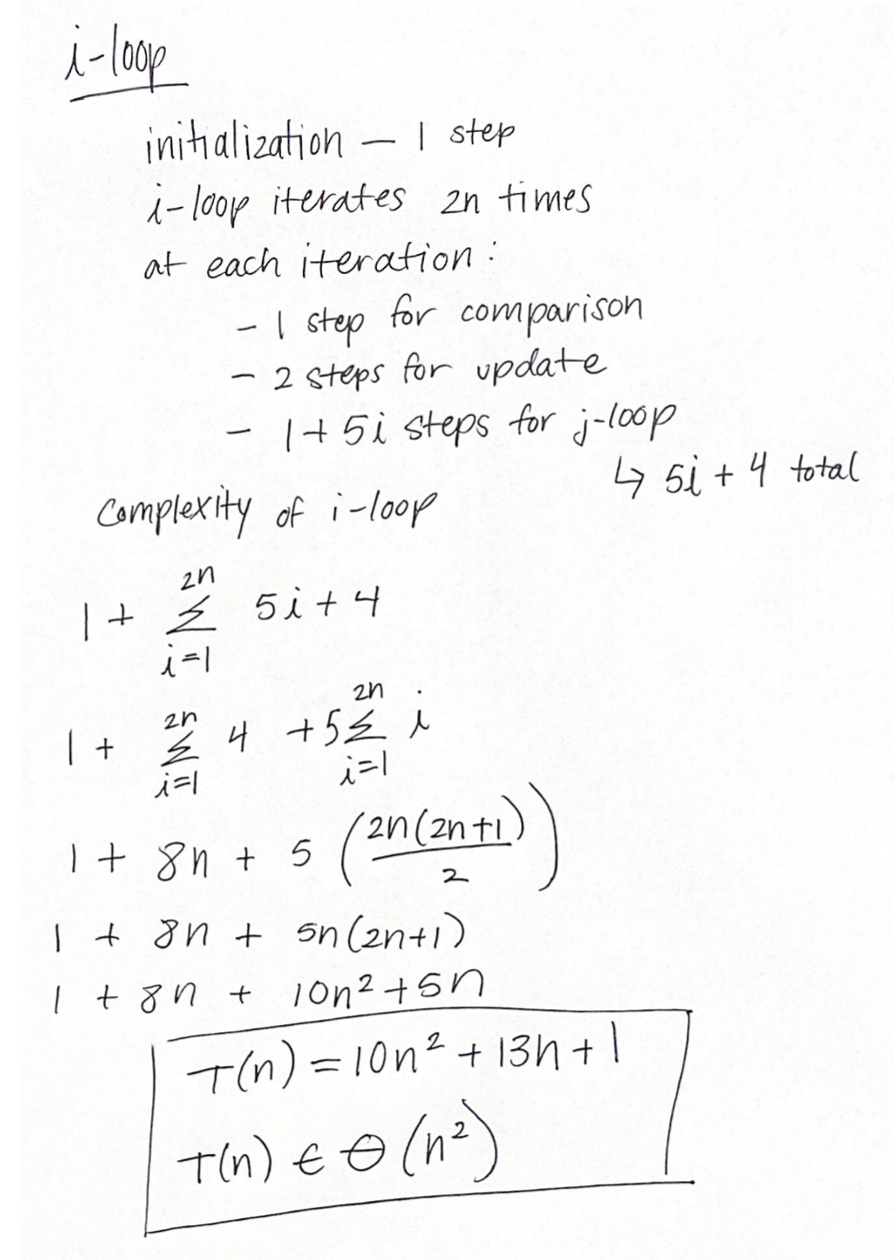 i-loop
initialization – 1 step
i-loop iterates 2n times
at each iteration:
- 1 step for comparison
- 2 steps for update
- 1+5i steps for j-loop
↳ 5i + 4 total
Complexity of i-loop
1 + \sum_{i=1}^{2n} 5i + 4
1 + \sum_{i=1}^{2n} 4 + 5\sum_{i=1}^{2n} i
1 + 8n + 5 (\frac{2n(2n+1)}{2})
1 + 8n + 5n(2n+1)
1 + 8n + 10n² + 5n
T(n) = 10n² + 13n + 1
T(n) ∈ Θ(n²)